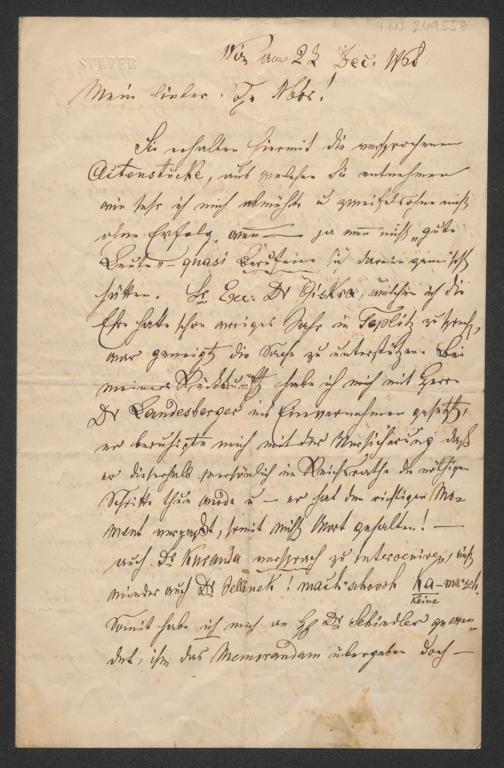 H.I.N. 249558
SULZER
Wien am 22 Dec. 1868.
Mein lieber Noos!
Sie erhalten hiermit die versprochenen
Actenstücke, aus welchen Sie entnehmen
wie sehr ich mich abmühte u zweifelsohne nicht
ohne Erfolg, wenn — ja wenn nicht „gute
Leute" – quasi Berufene sich darein gemischt
hätten. Sr Exc. Dr Giskra, welchen ich die
Ehre hatte schon voriges Jahr in Teplitz zu sprech,
war geneigt die Sache zu unterstützen. Bei
meiner Rückkunft habe ich mich mit Herrn
Dr Landesberger ins Einvernehmen gesetzt,
er beruhigte mich mit der Versicherung daß
er dieserhalb persönlich im Reichsrathe die nöthigen
Schritte thun würde u – er hat den richtigen Mo-
ment verpaßt, somit nicht Wort gehalten! —
auch Dr Kuranda versprach zu interveniren, nicht
minder auch Dr Jellinek! machschovoh ka-
keine
Somit habe ich mich an H Dr Schindler gewen-
det, ihm das Memorandum übergeben doch —